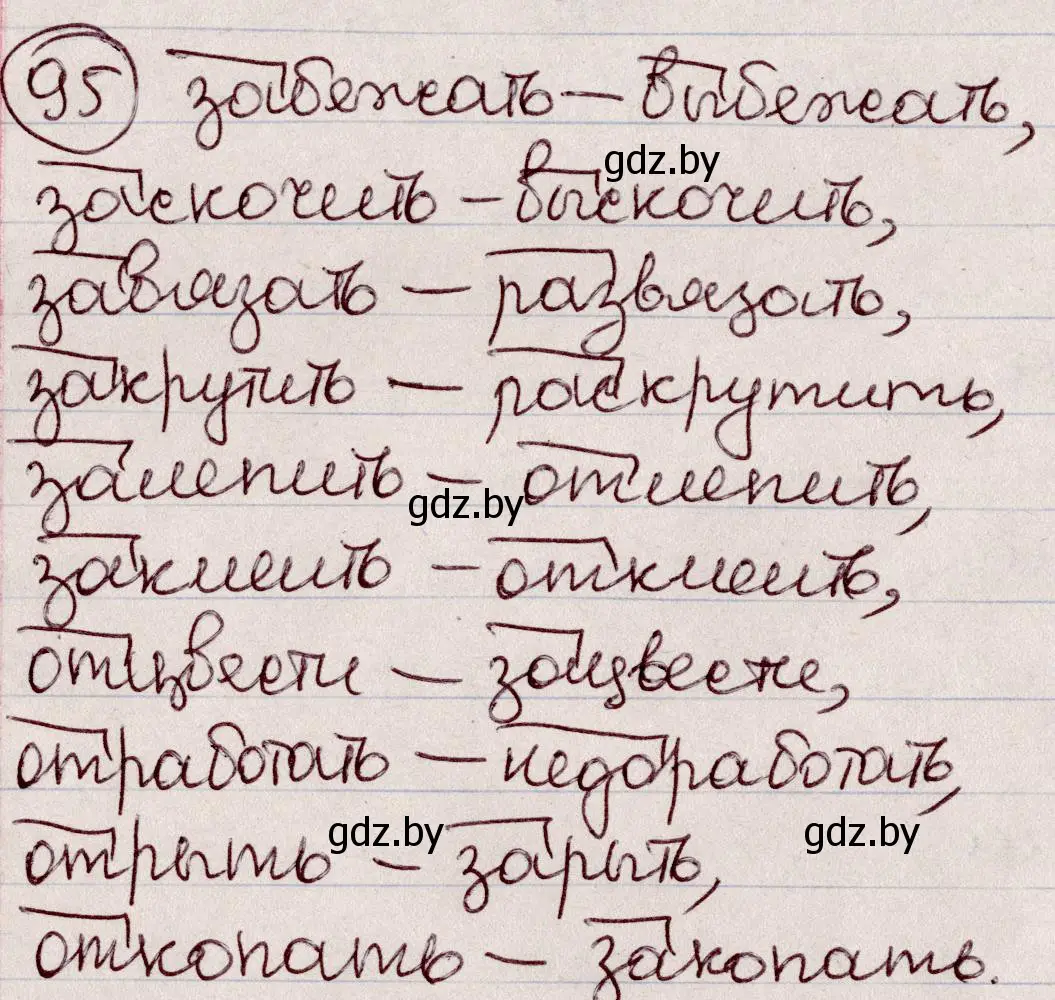 95 забежать – выбежать,
gdz.by
заскочить – выскочить,
завязать – развязать,
закрутить – раскрутить,
залепить – отлепить,
gdz.by
заклеить – отклеить,
отцвести – зацвести,
отработать – недоработать,
gdz.by gdz.by
отрыть – зарыть,
откопать – закопать.